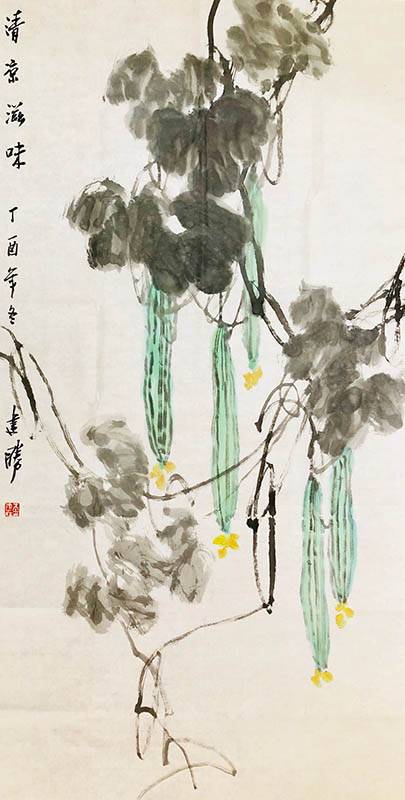 清京滋味 丁酉年冬 建勝